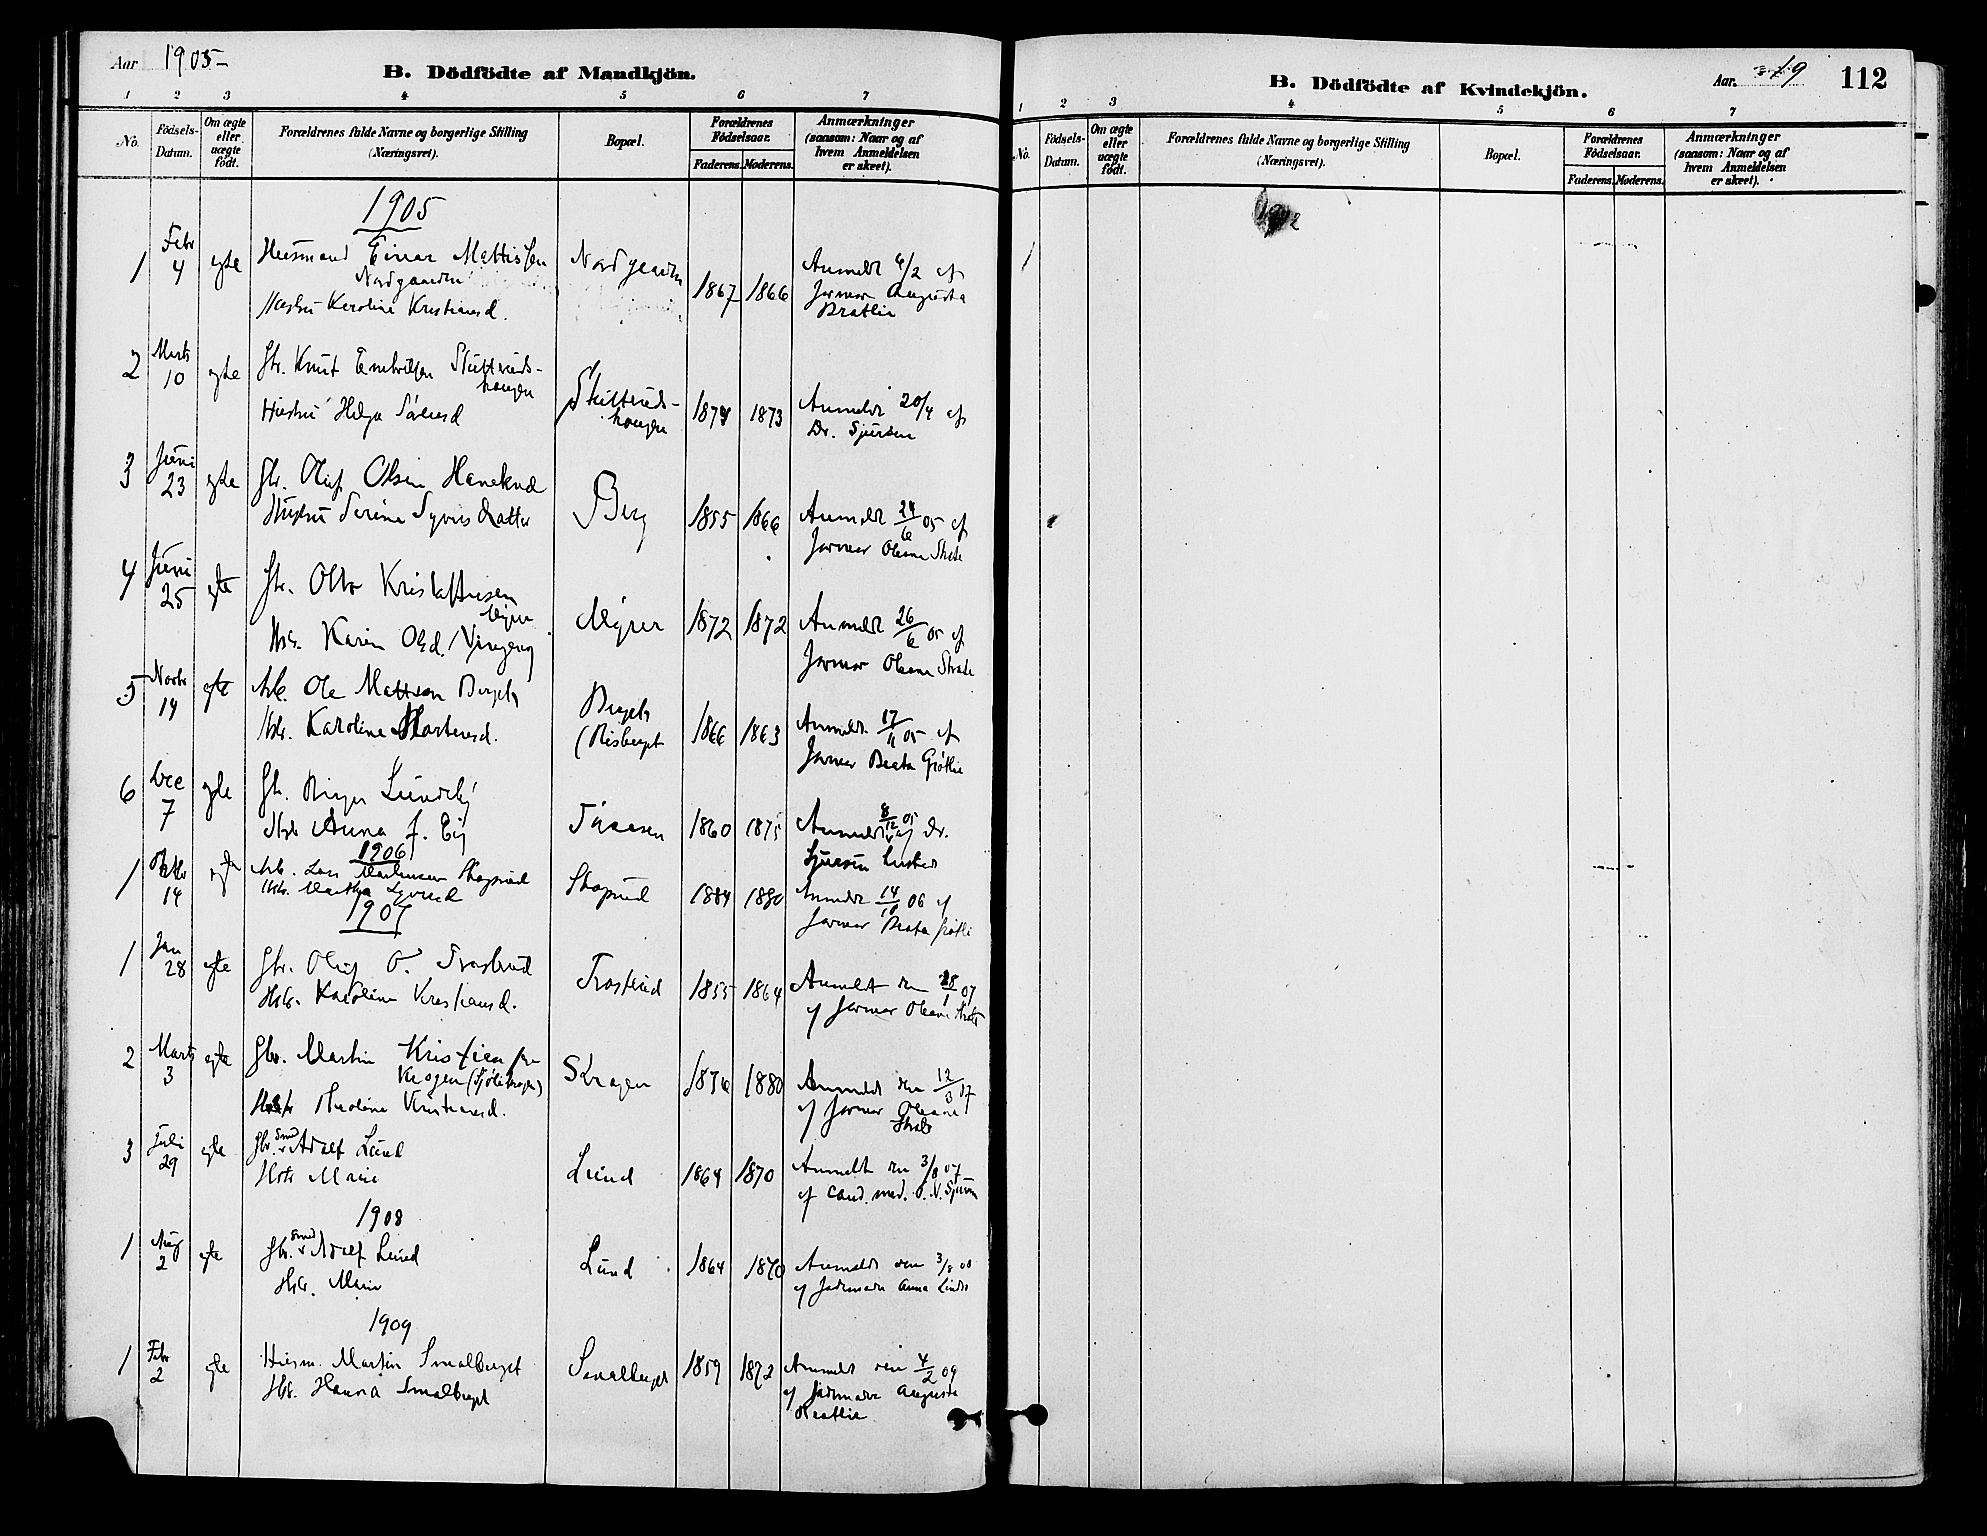 Aar 1905-
B. Dödfödte af Mandkjön.
1 2 3 4 5 6 7
No.
Födsels-
Datum.
Om ægte
eller
uægte
födt.
Forældrenes fulde Navne og borgerlige Stilling
(Næringsvei).
Bopæl.
Forældrenes
Födselsaar.
Faderens. Moderens.
Anmærkninger
(saasom: Naar og af
hvem Anmeldelsen
er skeet).
1905
1 Febr 4 egte
Husmand Einar Mattissen
Nordgaarden
Hustru Karoline Kristiansd.
Nordgaarden
1867 1866
Anmeldt 6/2 af
Jormor Augusta
Bratlie
2 Marts 10 egte
Gbr. Knut Skuttruds-
haugen
Hustru Helga Sörensd
Skuttruds-
haugen
1874 1873
Anmeldt 20/4 af
Dr. Sjursen
3 Juni 23 egte
Gbr. Oluf Olsen Haneknæ
Hustru Serine Syversdatter
Berg
1855 1866
Anmeldt 24/6 05 af
Jormor Oleane Strate
4 Juni 25 egte
Gbr. Otto Kristoffersen
Myrer
Hstr. Karen Olsd.
Myrer
1872 1872
Anmeldt 26/6 05 af
Jormor Oleane Strate
5 Novbr 14 egte
Arb. Ole Mattson Berget
Hstr. Karoline Martensd.
Berget
(Risberget
1866 1863
Anmeldt 17/11 05 af
Jormor Beata Grötlie
6 Dec 7 egte
Gbr. Birger Lundeby
Hstr Anna J. Eij
1860 1875
Anmeldt 8/12 05 af Dr.
Sjursen
1906
1 Oktbr 14 egte
Arb. Lars Skaprud
Hstr. Martha Syversd
Skaprud
1884 1880
Anmeldt 14/10 06 af
Jormor Beata Grötli
1907
1 Jan 28 egte
Gbr. Oluf O. Trostrud
Hstr. Karoline Kristiansd.
Trostrud
1855 1864
Anmeldt den 28/1 07
af Jormor Oleane Strate
2 Marts 3 egte
Gbr. Martin Kristiansen
Krogen
Hustr Kristiansd.
Skragen
1876 1880
Anmeldt den 12/3 07
af Jormor Oleane
Strate
3 Juli 29 egte
Gbr. Smed v Adolf Lund
Hstr Marie
Lund
1864 1870
Anmeldt den 3/8 07
af cand. med. O. N. Sjursen
1908
1 Aug 2 egte
Gbr. Smed v Adolf Lund
Hstr. Marie
Lund
1864 1870
Anmeldt den 3/8 08
af Jordmoder Anna Linds
1909
1 Febr 2 egte
Husm. Martin Smalberget
Hstr. Hanna Smalberget
Smalberget
1859 1872
Anmeldt den 4/2 09
af Jordmoder Augusta
Bratlie
B. Dödfödte af Kvindekjön.
Aar. 19
112
1 2 3 4 5 6 7
No.
Födsels-
Datum.
Om ægte
eller
uægte
födt.
Forældrenes fulde Navne og borgerlige Stilling
(Næringsvei).
Bopæl.
Forældrenes
Födselsaar.
Faderens. Moderens.
Anmærkninger
(saasom: Naar og af
hvem Anmeldelsen
er skeet).